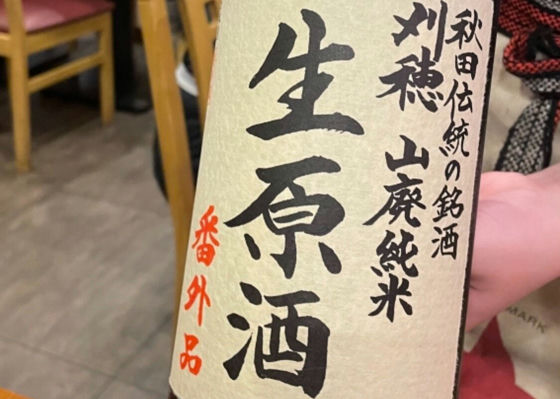 秋田伝統の銘酒
刈穂 山廃純米
生原酒
番外品
MARK